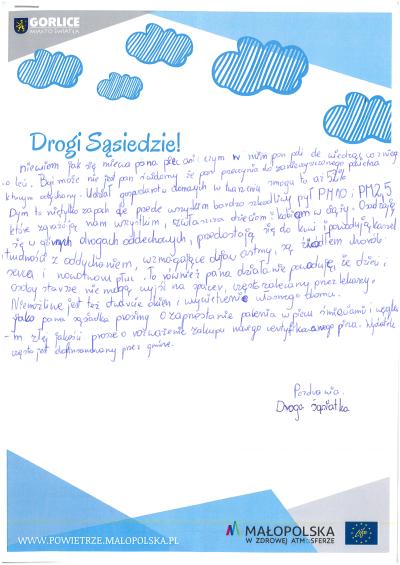 GORLICE
MIASTO ŚWIATŁA
Drogi Sąsiedzie!
niewiem jak się miewa pana plecami czym w mim pan pali
o tej. Być może nie jest pan świadomy że pan przyczynia do zanieczyszczonego powietrza
którym oddychamy. Udział gospodarstw domowych w tworzeniu smogu to aż 52%
Dym to nietylko zapach ale przede wszystkim bardzo szkodliwy pył PM10 i PM2,5
które zagrażają nam wszystkim, zwłaszcza dzieciom i kobietom w ciąży. Osadzają
się w górnych drogach oddechowych, przedostają się do krwi i powodują kaszel
trudność z oddychaniem, wzmagające objawy astmy, są źródłem chorób
serca i nowotworu płuc. To również pana działanie powoduję, że dzieci i
osoby starsze nie mogą wyjść na spacer, często zalecany przez lekarzy.
Niemożliwe jest też otwarcie okien i wywietrzenie własnego domu.
Jako pana sąsiadka prosimy o zaprzestanie palenia w piecu śmieciami i węgle
-m złej jakości prosze o rozważenie zakupu nowego certyfikowanego pieca. Wydatek
często jest dofinansowany przez gminę.
Pozdrawia.
Droga Sąsiatka
WWW.POWIETRZE.MALOPOLSKA.PL
MAŁOPOLSKA
W ZDROWEJ ATMOSFERZE
Life